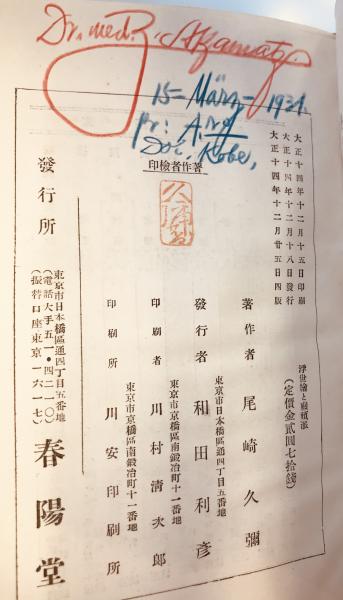 Dr. med. Z. Akamatz.
15 - März - 1934.
Doc. Kobe,
大正十四年十二月十五日印刷
大正十四年十二月十八日發行
大正十四年十二月廿五日四版
浮世繪と頽廢派
(定價金貳圓七拾錢)
著作者印檢
著作者 尾崎久彌
東京市日本橋區通四丁目五番地
發行者 和田利彦
東京市京橋區南鍛冶町十一番地
印刷者 川村清次郎
東京市京橋區南鍛冶町十一番地
印刷所 川安印刷所
發行所
東京市日本橋區通四丁目五番地
(電話大手五一・四二一〇)
(振替口座東京一六一七)
春陽堂